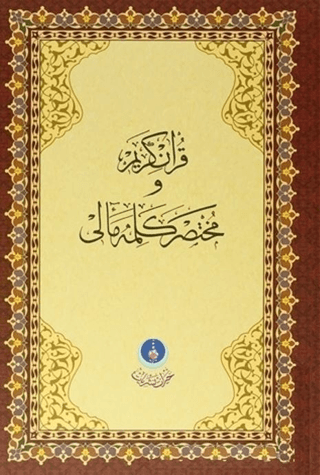 قُرْاٰنِ كَرِيمْ
و
مُخْتَصَرْ كَلِمَه مَاٰلِى